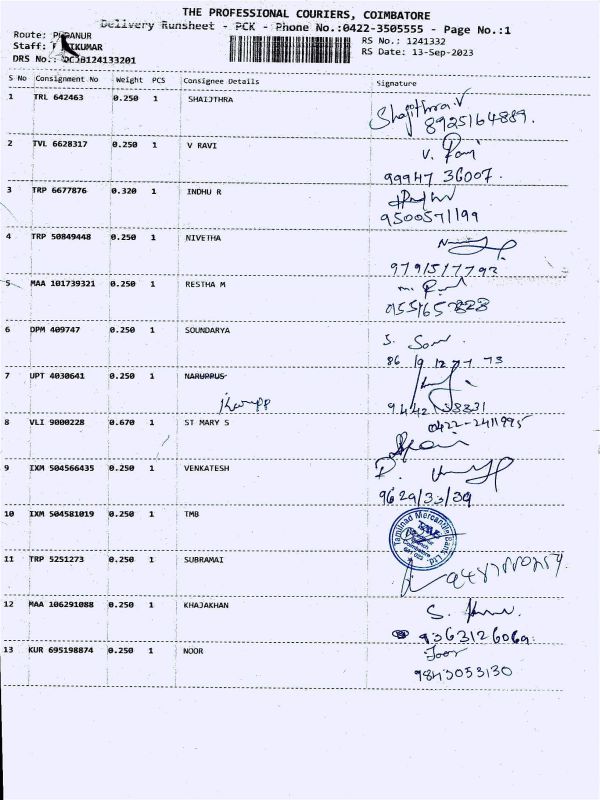 THE PROFESSIONAL COURIERS, COIMBATORE
Delivery Runsheet - PCK - Phone No.:0422-3505555 - Page No.:1
Route: PERANUR
RS No.: 1241332
Staff:
RS Date: 13-Sep-2023
DRS No.: DCJB124133201
S No Consignment No Weight PCS Consignee Details Signature
1 TRL 642463 0.250 1 SHAIJTHRA
Shaijthra.V
8925164889.
2 TVL 6628317 0.250 1 V RAVI
V. Ravi
99947 36007.
3 TRP 6677876 0.320 1 INDHU R
9500571199
4 TRP 50849448 0.250 1 NIVETHA
9791517793
5 MAA 101739321 0.250 1 RESTHA M
6 DPM 409747 0.250 1 SOUNDARYA
S.
86 19 1277 73
7 UPT 4030641 0.250 1 NARUPPUS
8 VLI 9000228 0.670 1 ST MARY S
0422-2411995
9 IXM 504566435 0.250 1 VENKATESH
10 IXM 504581019 0.250 1 TMB
Tamilnad Mercantile Bank Ltd
11 TRP 5251273 0.250 1 SUBRAMAI
12 MAA 106291088 0.250 1 KHAJAKHAN
S.
9363126069
13 KUR 695198874 0.250 1 NOOR
Joor
9843053130